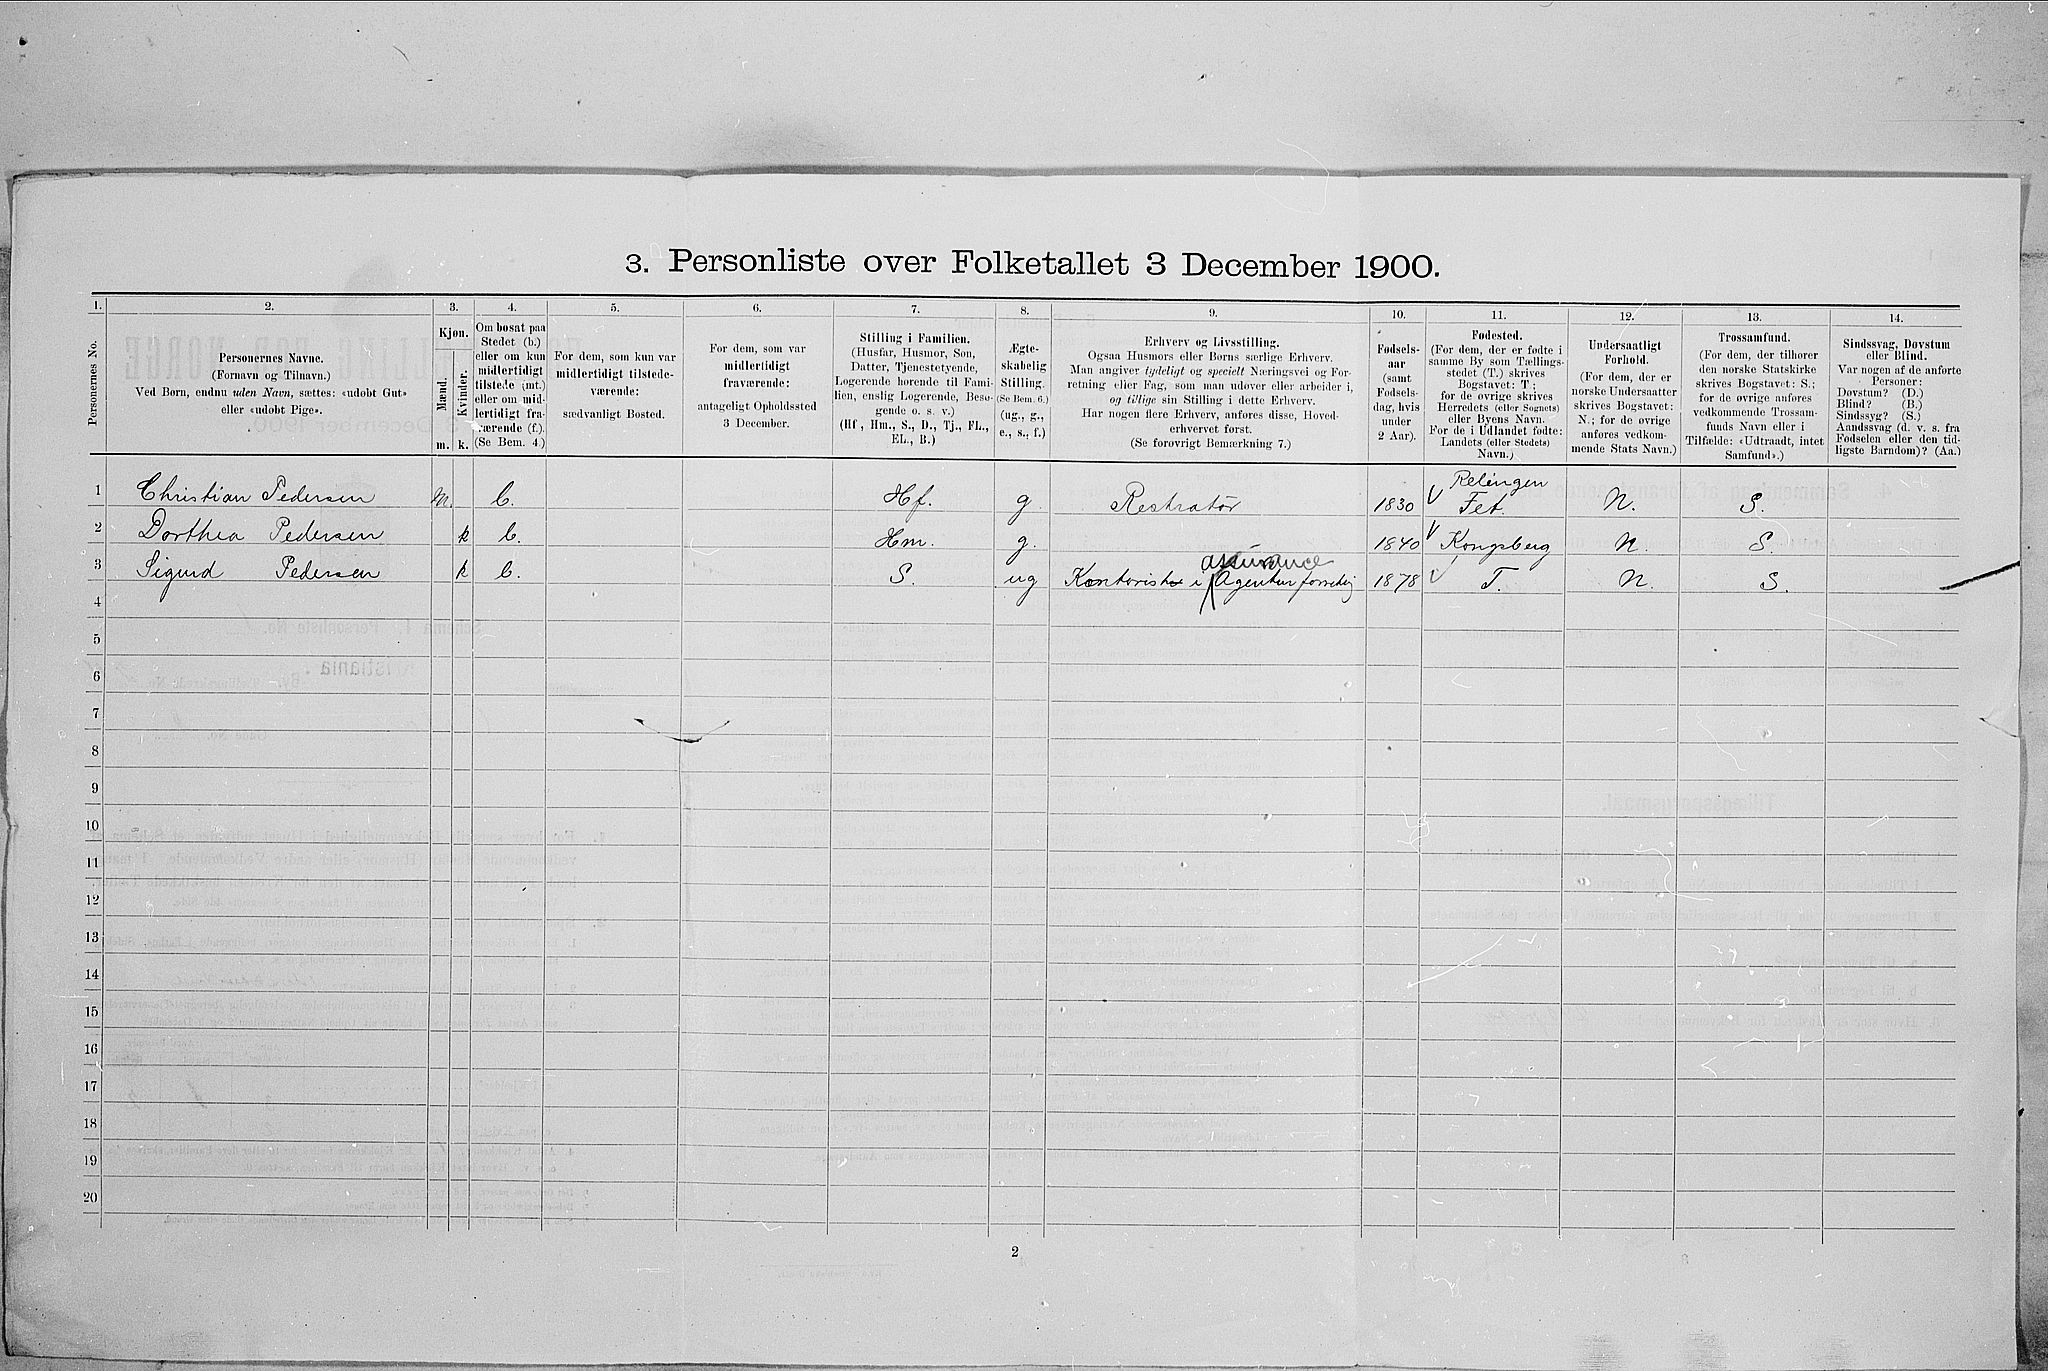 3. Personliste over Folketallet 3 December 1900.
1. 2. 3. 4. 5. 6. 7. 8. 9. 10. 11. 12. 13. 14.
Personernes No.
Personernes Navne.
(Fornavn og Tilnavn.)
Ved Børn, endnu uden Navn, sættes: «udøbt Gut»
eller «udøbt Pige».
Kjøn.
Mænd.
Kvinder.
m. k.
Om bosat paa
Stedet (b.)
eller om kun
midlertidigt
tilstede (mt.)
eller om mid-
lertidigt fra-
værende (f.).
(Se Bem. 4.)
For dem, som kun var
midlertidigt tilstede-
værende:
sædvanligt Bosted.
For dem, som var
midlertidigt
fraværende:
antageligt Opholdssted
3 December.
Stilling i Familien.
(Husfar, Husmor, Søn,
Datter, Tjenestetyende,
Logerende hørende til Fami-
lien, enslig Logerende, Besø-
gende o. s. v.)
(Hf., Hm., S., D., Tj., FL.,
EL., B.)
Ægte-
skabelig
Stilling.
(Se Bem. 6.)
(ug., g.,
e., s., f.)
Erhverv og Livsstilling.
Ogsaa Husmors eller Børns særlige Erhverv.
Man angiver tydeligt og specielt Næringsvei og For-
retning eller Fag, som man udøver eller arbeider i,
og tillige sin Stilling i dette Erhverv.
Har nogen flere Erhverv, anføres disse, Hoved-
erhvervet først.
(Se forøvrigt Bemærkning 7.)
Fødsels-
aar
(samt
Fødsels-
dag, hvis
under
2 Aar).
Fødested.
(For dem, der er fødte i
samme By som Tællings-
stedet (T.) skrives
Bogstavet: T;
for de øvrige skrives
Herredets (eller Sognets)
eller Byens Navn.
For de i Udlandet fødte:
Landets (eller Stedets)
Navn.)
Undersaatligt
Forhold.
(For dem, der er
norske Undersaatter
skrives Bogstavet:
N.; for de øvrige
anføres vedkom-
mende Stats Navn.)
Trossamfund.
(For dem, der tilhører
den norske Statskirke
skrives Bogstavet: S.;
for de øvrige anføres
vedkommende Trossam-
funds Navn eller i
Tilfælde: «Udtraadt, intet
Samfund».)
Sindssvag, Døvstum
eller Blind.
Var nogen af de anførte
Personer:
Døvstum? (D.)
Blind? (B.)
Sindssyg? (S.)
Aandssvag (d. v. s. fra
Fødselen eller den tid-
ligste Barndom)? (Aa.)
Relingen
1 Christian Pedersen m. b. Hf. g. Restratør 1830 Fet. N. S.
2 Dorthea Pedersen k b. Hm. g. 1840 Kongsberg N. S.
assurance
3 Sigurd Pedersen k b. S. ug Kontorist i Agentur forretning 1878 T. N. S.
4
5
6
7
8
9
10
11
12
13
14
15
16
17
18
19
20
2